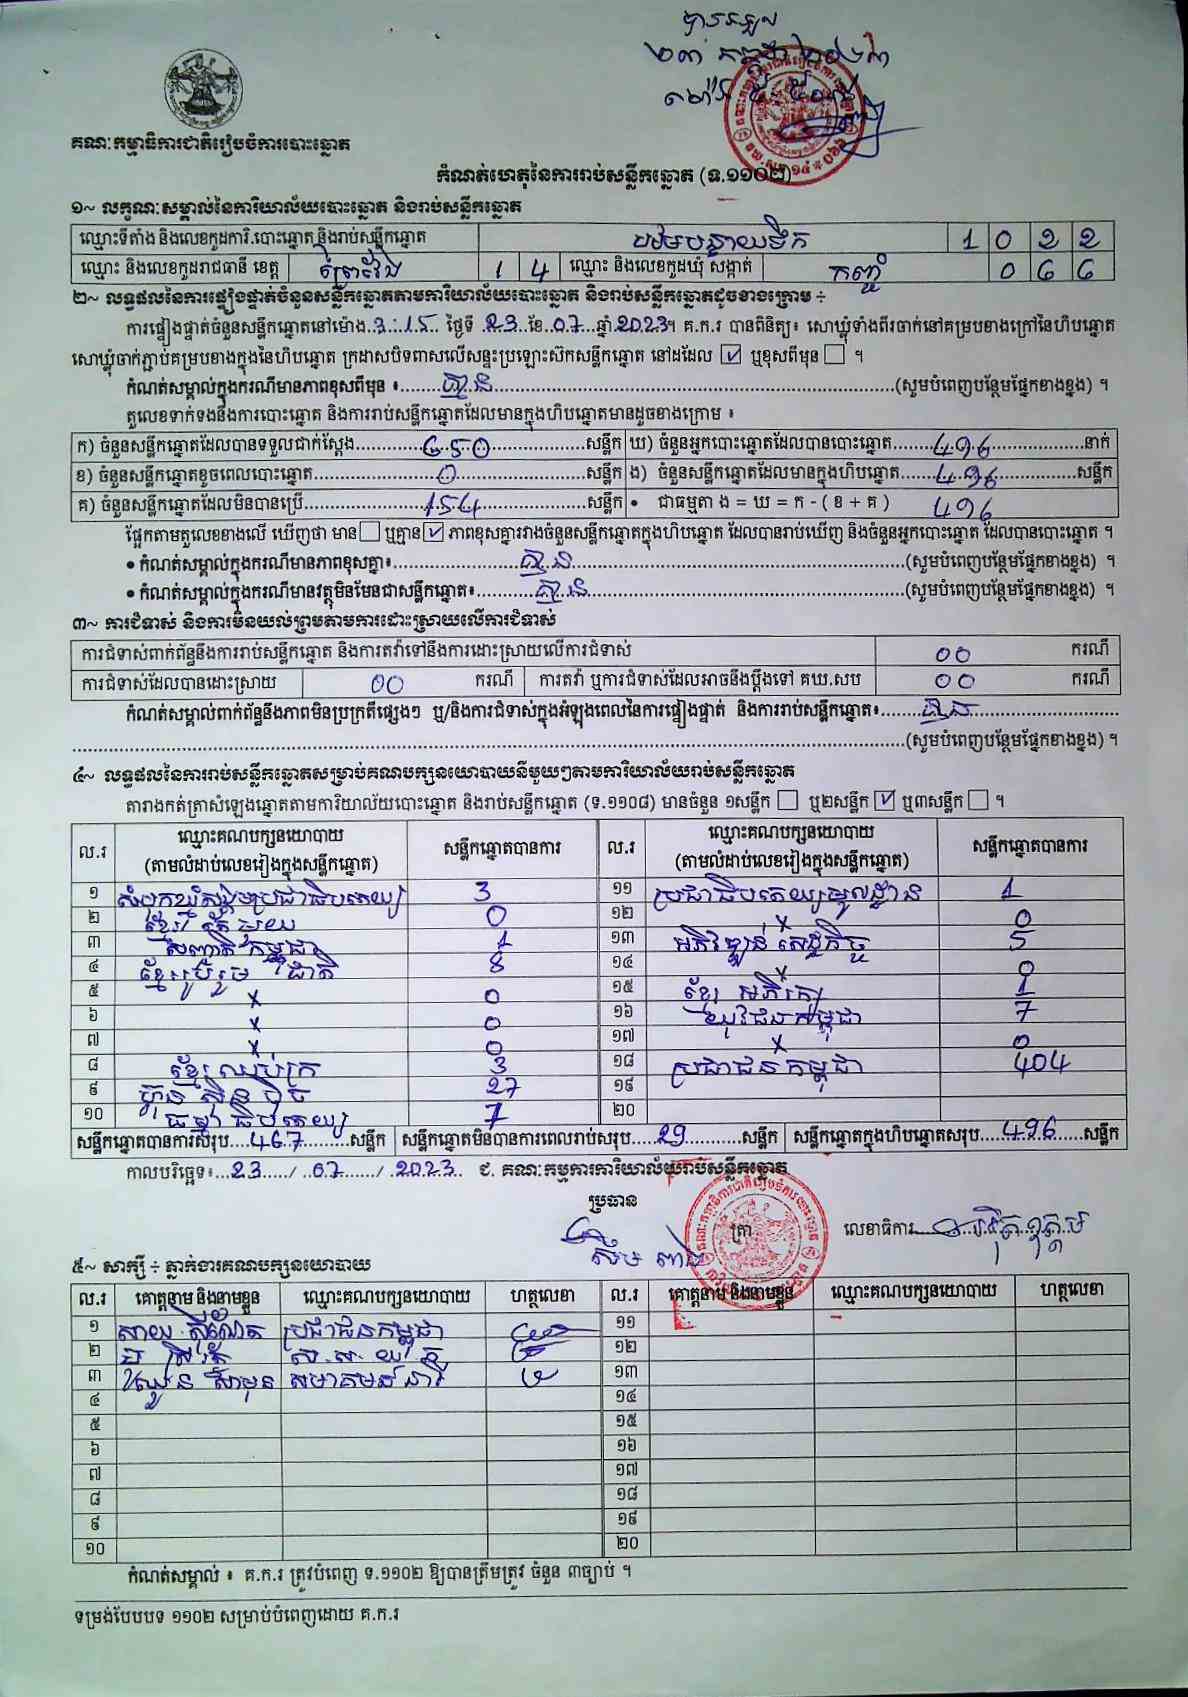 បានទទួល
គណៈកម្មាធិការជាតិរៀបចំការបោះឆ្នោត
កំណត់ហេតុនៃការរាប់សន្លឹកឆ្នោត (ទ.១១០២)
១~ លក្ខណៈសម្គាល់នៃការិយាល័យបោះឆ្នោត និងរាប់សន្លឹកឆ្នោត
ឈ្មោះទីតាំង និងលេខកូដការិ.បោះឆ្នោត និងរាប់សន្លឹកឆ្នោត 1 0 2 2
ឈ្មោះ និងលេខកូដរាជធានី ខេត្ត ព្រៃវែង 1 4 ឈ្មោះ និងលេខកូដឃុំ សង្កាត់ កញ្ជំ 0 6 6
២~ លទ្ធផលនៃការផ្ទៀងផ្ទាត់ចំនួនសន្លឹកឆ្នោតតាមការិយាល័យបោះឆ្នោត និងរាប់សន្លឹកឆ្នោតដូចខាងក្រោម ÷
ការផ្ទៀងផ្ទាត់ចំនួនសន្លឹកឆ្នោតនៅម៉ោង..3:15.. ថ្ងៃទី 23 ខែ.07... ឆ្នាំ 2023។ គ.ក.រ បានពិនិត្យ៖ សោឃ្លុំទាំងពីរចាក់នៅគម្របខាងក្រៅនៃហិបឆ្នោត
សោឃ្លុំចាក់ភ្ជាប់គម្របខាងក្នុងនៃហិបឆ្នោត ក្រដាសបិទពាសលើសន្ទះប្រឡោះស៊កសន្លឹកឆ្នោត នៅដដែល ☑ ឬខុសពីមុន ☐ ។
កំណត់សម្គាល់ក្នុងករណីមានភាពខុសពីមុន ៖.......គ្មាន.......(សូមបំពេញបន្ថែមផ្នែកខាងខ្នង) ។
តួលេខទាក់ទងនឹងការបោះឆ្នោត និងការរាប់សន្លឹកឆ្នោតដែលមានក្នុងហិបឆ្នោតមានដូចខាងក្រោម ៖
ក) ចំនួនសន្លឹកឆ្នោតដែលបានទទួលជាក់ស្តែង.......650.......សន្លឹក ឃ) ចំនួនអ្នកបោះឆ្នោតដែលបានបោះឆ្នោត.......496.......នាក់
ខ) ចំនួនសន្លឹកឆ្នោតខូចពេលបោះឆ្នោត.......0.......សន្លឹក ង) ចំនួនសន្លឹកឆ្នោតដែលមានក្នុងហិបឆ្នោត.......496.......សន្លឹក
គ) ចំនួនសន្លឹកឆ្នោតដែលមិនបានប្រើ.......154.......សន្លឹក • ជាធម្មតា ង = ឃ = ក - ( ខ + គ ) 496
ផ្អែកតាមតួលេខខាងលើ ឃើញថា មាន ☐ ឬគ្មាន ☑ ភាពខុសគ្នារវាងចំនួនសន្លឹកឆ្នោតក្នុងហិបឆ្នោត ដែលបានរាប់ឃើញ និងចំនួនអ្នកបោះឆ្នោត ដែលបានបោះឆ្នោត ។
• កំណត់សម្គាល់ក្នុងករណីមានភាពខុសគ្នា៖.......គ្មាន.......(សូមបំពេញបន្ថែមផ្នែកខាងខ្នង) ។
• កំណត់សម្គាល់ក្នុងករណីមានវត្ថុមិនមែនជាសន្លឹកឆ្នោត៖.......គ្មាន.......(សូមបំពេញបន្ថែមផ្នែកខាងខ្នង) ។
៣~ ការជំទាស់ និងការមិនយល់ព្រមតាមការដោះស្រាយលើការជំទាស់
ការជំទាស់ពាក់ព័ន្ធនឹងការរាប់សន្លឹកឆ្នោត និងការតវ៉ាទៅនឹងការដោះស្រាយលើការជំទាស់ 00 ករណី
ការជំទាស់ដែលបានដោះស្រាយ 00 ករណី ការតវ៉ា ឬការជំទាស់ដែលអាចនឹងប្តឹងទៅ គឃ.សប 00 ករណី
កំណត់សម្គាល់ពាក់ព័ន្ធនឹងភាពមិនប្រក្រតីផ្សេងៗ ឬ/និងការជំទាស់ក្នុងអំឡុងពេលនៃការផ្ទៀងផ្ទាត់ និងការរាប់សន្លឹកឆ្នោត៖.......គ្មាន.......
.......(សូមបំពេញបន្ថែមផ្នែកខាងខ្នង) ។
៤~ លទ្ធផលនៃការរាប់សន្លឹកឆ្នោតសម្រាប់គណបក្សនយោបាយនីមួយៗតាមការិយាល័យរាប់សន្លឹកឆ្នោត
តារាងកត់ត្រាសំឡេងឆ្នោតតាមការិយាល័យបោះឆ្នោត និងរាប់សន្លឹកឆ្នោត (ទ.១១០៨) មានចំនួន ១សន្លឹក ☐ ឬ២សន្លឹក ☑ ឬ៣សន្លឹក ☐ ។
ល.រ ឈ្មោះគណបក្សនយោបាយ (តាមលំដាប់លេខរៀងក្នុងសន្លឹកឆ្នោត) សន្លឹកឆ្នោតបានការ ល.រ ឈ្មោះគណបក្សនយោបាយ (តាមលំដាប់លេខរៀងក្នុងសន្លឹកឆ្នោត) សន្លឹកឆ្នោតបានការ
១ សំបុកឃ្មុំសង្គមប្រជាធិបតេយ្យ 3 ១១ ប្រជាធិបតេយ្យមូលដ្ឋាន 1
២ ខ្មែរតែមួយ 0 ១២ x 0
៣ សញ្ជាតិកម្ពុជា 1 ១៣ អភិវឌ្ឍន៍សេដ្ឋកិច្ច 5
៤ ខ្មែររួបរួមជាតិ 8 ១៤ x 0
៥ x 0 ១៥ ខ្មែរអភិរក្ស 1
៦ x 0 ១៦ យុវជនកម្ពុជា 7
៧ x 0 ១៧ x 0
៨ ខ្មែរឈប់ក្រ 3 ១៨ ប្រជាជនកម្ពុជា 404
៩ ហ៊្វុនស៊ិនប៉ិច 27 ១៩
១០ ធម្មាធិបតេយ្យ 7 ២០
សន្លឹកឆ្នោតបានការសរុប...467...សន្លឹក សន្លឹកឆ្នោតមិនបានការពេលរាប់សរុប...29...សន្លឹក សន្លឹកឆ្នោតក្នុងហិបឆ្នោតសរុប...496...សន្លឹក
កាលបរិច្ឆេទ៖...23.../...07.../...2023.. ជ. គណៈកម្មការការិយាល័យរាប់សន្លឹកឆ្នោត
ប្រធាន
ត្រា លេខាធិការ
៥~ សាក្សី ÷ ភ្នាក់ងារគណបក្សនយោបាយ
ល.រ គោត្តនាម និងនាមខ្លួន ឈ្មោះគណបក្សនយោបាយ ហត្ថលេខា ល.រ គោត្តនាម និងនាមខ្លួន ឈ្មោះគណបក្សនយោបាយ ហត្ថលេខា
១ ប្រជាជនកម្ពុជា ១១
២ ១២
៣ ១៣
៤ ១៤
៥ ១៥
៦ ១៦
៧ ១៧
៨ ១៨
៩ ១៩
១០ ២០
កំណត់សម្គាល់ ៖ គ.ក.រ ត្រូវបំពេញ ទ.១១០២ ឱ្យបានត្រឹមត្រូវ ចំនួន ៣ច្បាប់ ។
ទម្រង់បែបបទ ១១០២ សម្រាប់បំពេញដោយ គ.ក.រ